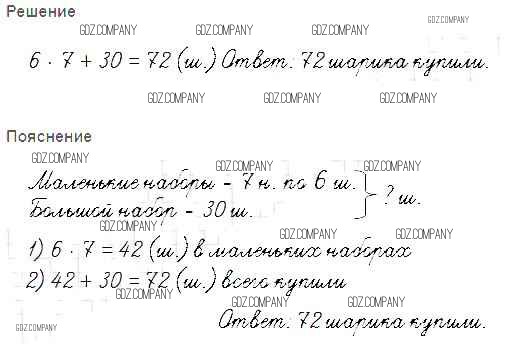 Решение
GDZ.COMPANY GDZ.COMPANY GDZ.COMPANY GDZ.COMPANY
6 · 7 + 30 = 72 (ш.) Ответ: 72 шарика купили.
GDZ.COMPANY GDZ.COMPANY GDZ.COMPANY
Пояснение
GDZ.COMPANY GDZ.COMPANY GDZ.COMPANY
Маленькие наборы – 7 н. по 6 ш.
Большой набор – 30 ш.
? ш.
GDZ.COMPANY GDZ.COMPANY GDZ.COMPANY
1) 6 · 7 = 42 (ш.) в маленьких наборах
2) 42 + 30 = 72 (ш.) всего купили
GDZ.COMPANY GDZ.COMPANY GDZ.COMPANY
Ответ: 72 шарика купили.
GDZ.COMPANY